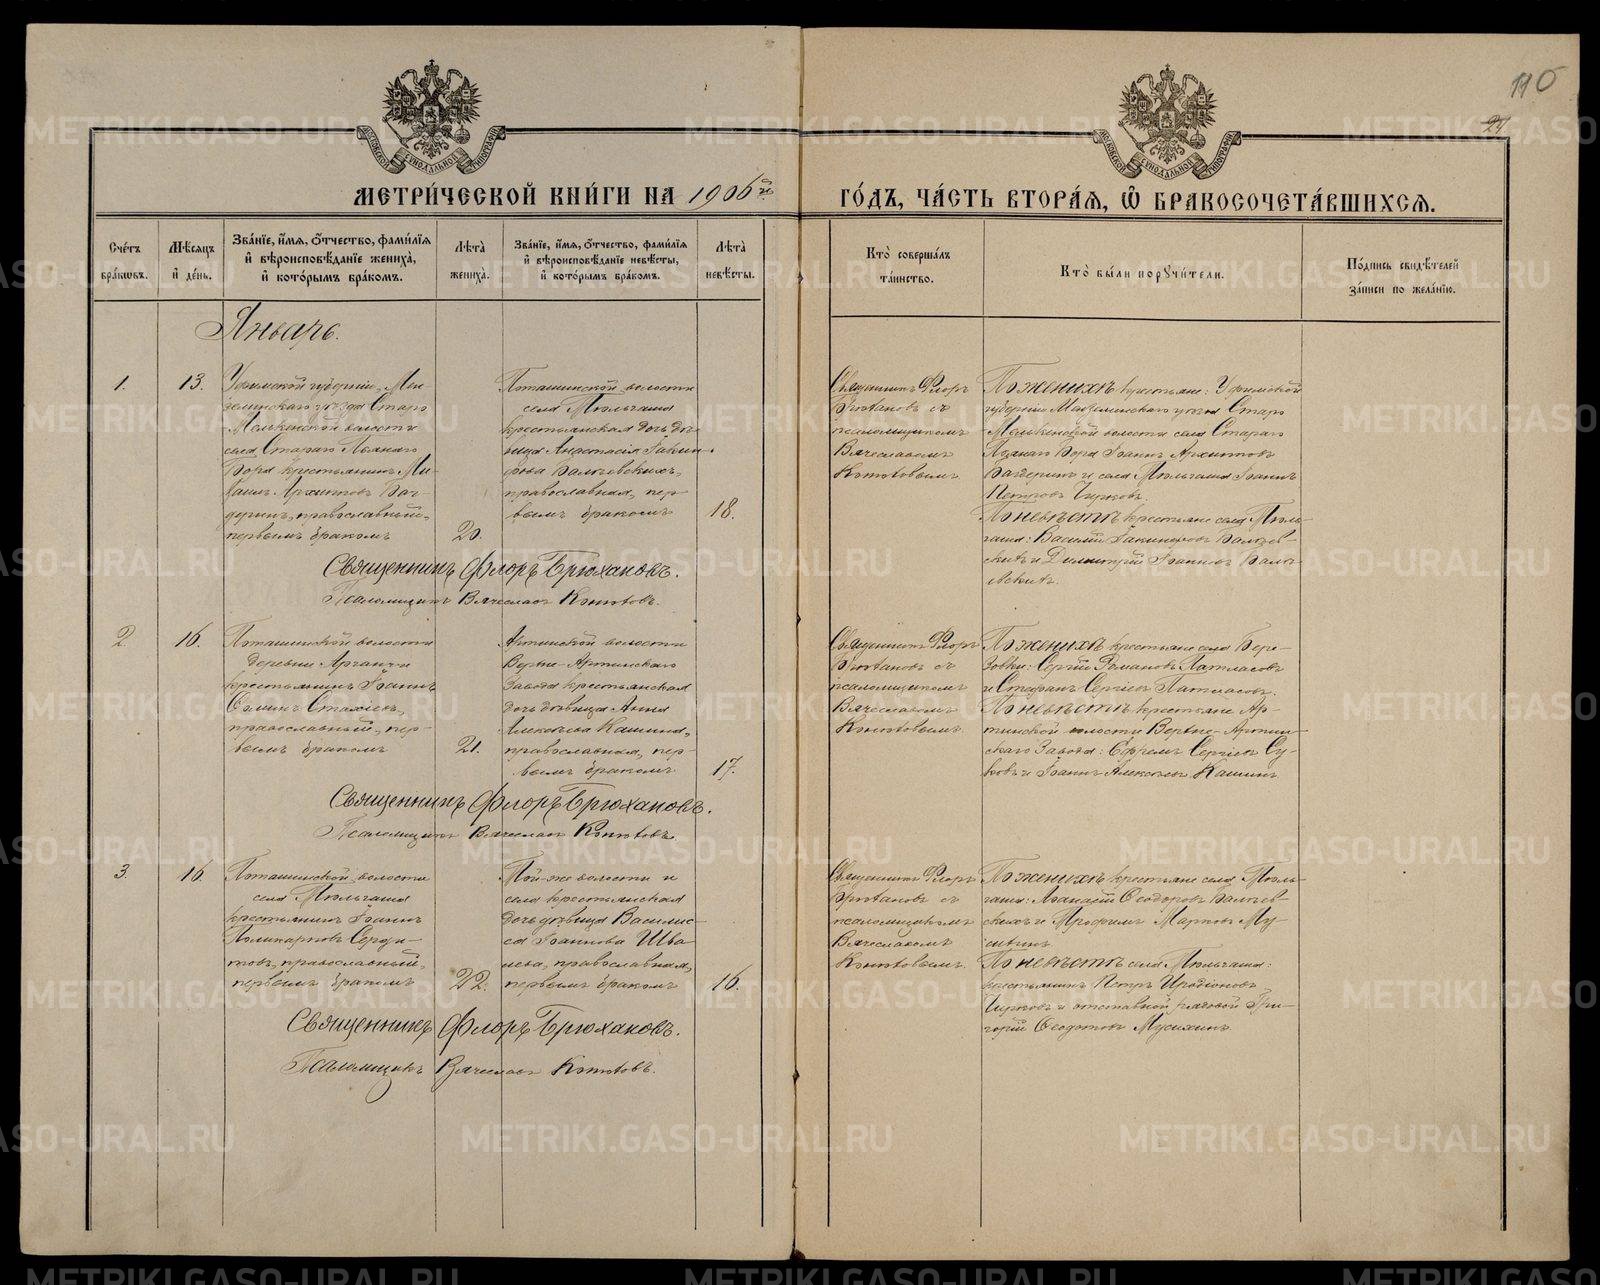 110
27
МОСКОВСКОЙ СѴНОДАЛЬНОЙ ТИПОГРАФІИ
МОСКОВСКОЙ СѴНОДАЛЬНОЙ ТИПОГРАФІИ
МЕТРИ́ЧЕСКОЙ КНИ́ГИ НА 1906й
ГО́ДЪ, ЧА́СТЬ ВТОРА́Я, Ѽ БРАКОСОЧЕТА́ВШИХСЯ.
Сче́тъ бра́ковъ.
Мѣ́сяцъ и҆ де́нь.
Зва́нїе, и҆́мя, ѻ҆́тчество, фами́лїя
и҆ вѣроисповѣ́данїе жениха̀,
и҆ кото́рымъ бра́комъ.
Лѣта̀ жениха̀.
Зва́нїе, и҆́мя, ѻ҆́тчество, фами́лїя
и҆ вѣроисповѣ́данїе невѣ́сты,
и҆ кото́рымъ бра́комъ.
Лѣта̀ невѣ́сты.
Кто̀ соверша́лъ
та́инство.
Кто̀ бы́ли порꙋчи́тели.
По́дпись свидѣ́телей
за́писи по жела́нїю.
Январь.
1.
13.
Уфимской губерніи, Мен-
зелинскаго уѣзда Старо
Мелькенской волости
села Стараго Пьянаго
Бора крестьянинъ Ми-
хаилъ Архиповъ Баг-
деринъ, православный,
первымъ бракомъ
20.
Поташинской волости
села Тюльгаша
крестьянская дочь дѣ-
вица Анастасія Іакин-
фова
православная, пер-
вымъ бракомъ
18.
Священникъ Флоръ
Брюхановъ съ
псаломщикомъ
Вячеславомъ
По женихѣ крестьяне: Уфимской
губерніи Мензелинскаго уѣзда Старо
Мелькенской волости села Стараго
Пьянаго Бора Іоаннъ Архиповъ
Багдеринъ и села Тюльгаша Іоаннъ
Петровъ Чирковъ.
По невѣстѣ крестьяне села Тюль-
гаша: Василій Іакинфовъ
и Димитрій Іоанновъ
Священникъ Флоръ Брюхановъ.
Псаломщикъ Вячеславъ
2.
16.
Поташинской волости
деревни
крестьянинъ Іоаннъ
православный, пер-
вымъ бракомъ
21.
Артинской волости
Верхне-Артинскаго
завода крестьянская
дочь дѣвица Анна
Алексѣева Кашина,
православная, пер-
вымъ бракомъ
17.
Священникъ Флоръ
Брюхановъ съ
псаломщикомъ
Вячеславомъ
По женихѣ крестьяне села Бере-
зовки: Сергій Романовъ Патласовъ
и Стефанъ Сергіевъ Патласовъ.
По невѣстѣ крестьяне Ар-
тинской волости Верхне-Артин-
скаго Завода: Ефремъ Сергіевъ Су-
ховъ и Іоаннъ Алексѣевъ Кашинъ
Священникъ Флоръ Брюхановъ.
Псаломщикъ Вячеславъ
3.
16.
Поташинской волости
села Тюльгаша
крестьянинъ Іоаннъ
Поликарповъ Серди-
товъ, православный,
первымъ бракомъ
22.
Той-же волости и
села крестьянская
дочь дѣвица Василис-
са Іоаннова Шва-
лева, православная,
первымъ бракомъ
16.
Священникъ Флоръ
Брюхановъ съ
псаломщикомъ
Вячеславомъ
По женихѣ крестьяне села Тюль-
гаша: Аѳанасій Ѳеодоровъ
и Трофимъ Марковъ Му-
сихинъ
По невѣстѣ села Тюльгаша:
крестьянинъ Петръ Иродіоновъ
Чирковъ и отставной рядовой Гри-
горій Ѳеодотовъ Мусихинъ
Священникъ Флоръ Брюхановъ.
Псаломщикъ Вячеславъ
METRIKI.GASO-URAL.RU